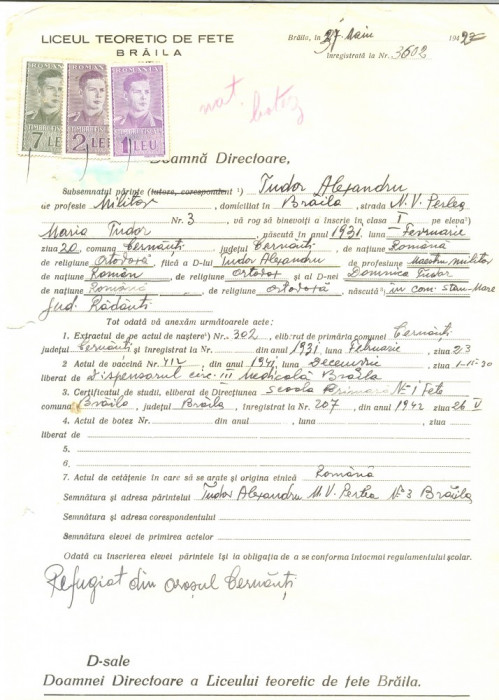 LICEUL TEORETIC DE FETE
BRĂILA
Brăila, la 27 Maiu 1942
Înregistrată la Nr. 3602
ROMANIA ROMANIA ROMANIA
TIMBRU FISCAL TIMBRU FISCAL TIMBRU FISCAL
7 LEI 2 LEI 1 LEU
nat.
botez
Doamnă Directoare,
Subsemnatul părinte (tutore, corespondent ¹) Tudor Alexandru
de profesie Militar, domiciliat în Brăila, strada M. V. Perlea
Nr. 3, vă rog să binevoiți a înscrie în clasa I pe eleva²)
Maria Tudor, născută în anul 1931 luna Februarie
ziua 20 comuna Cernăuți județul Cernăuți, de națiune Română
de religiune Ortodoxă, fiică a D-lui Tudor Alexandru de profesiune Maestru militar
de națiune Român de religiune Ortodox și al D-nei Domnica Tudor
de națiune Română, de religiune ortodoxă, născută³) în com. Mare
Jud. Rădăuți
Tot odată vă anexăm următoarele acte:
1. Extractul de pe actul de naștere⁴) Nr. 302, eliberat de primăria comunei Cernăuți
județul Cernăuți și înregistrat la Nr. din anul 1931 luna Februarie, ziua 23
2 Actul de vaccină Nr. 412 din anul 1941 luna Decemvrie ziua 1-11-30
liberat de Dispensarul circ. III Medicală Brăila
3. Certificatul de studii, eliberat de Direcțiunea Școala Primară N° 1 Fete
comuna Brăila, județul Brăila, înregistrat la Nr. 207, din anul 1942 ziua 26 V
4. Actul de botez Nr. din anul luna ziua
liberat de
5.
6.
7. Actul de cetățenie în care să se arate și origina etnică Română
Semnătura și adresa părintelui Tudor Alexandru M. V. Perlea N° 3 Brăila
Semnătura și adresa corespondentului
Semnătura elevei de primirea actelor
Odată cu înscrierea elevei părintele își ia obligația de a se conforma întocmai regulamentului școlar.
Refugiat din orașul Cernăuți
D-sale
Doamnei Directoare a Liceului teoretic de fete Brăila.